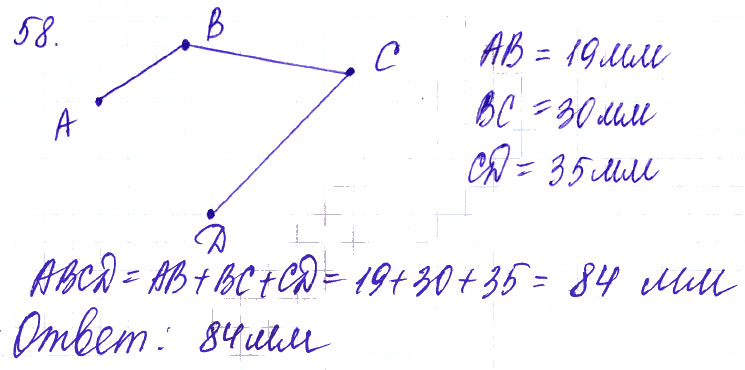 58.
B
C
A
D
AB = 19 мм
BC = 30 мм
CD = 35 мм
ABCD = AB + BC + CD = 19 + 30 + 35 = 84 мм
Ответ: 84 мм